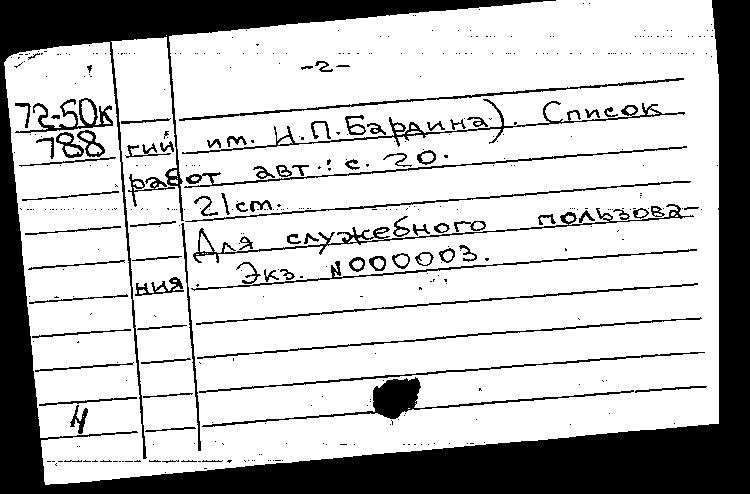 -2-
72-50к
788
гий им. И.П.Бардина). Список
работ авт.: с. 20.
21 cm.
Для служебного пользова-
ния. Экз. N000003.